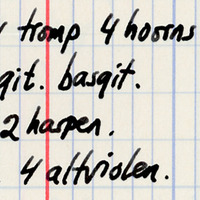 tromp 4 hoorns
git. basgit.
2 harpen.
4 altviolen.